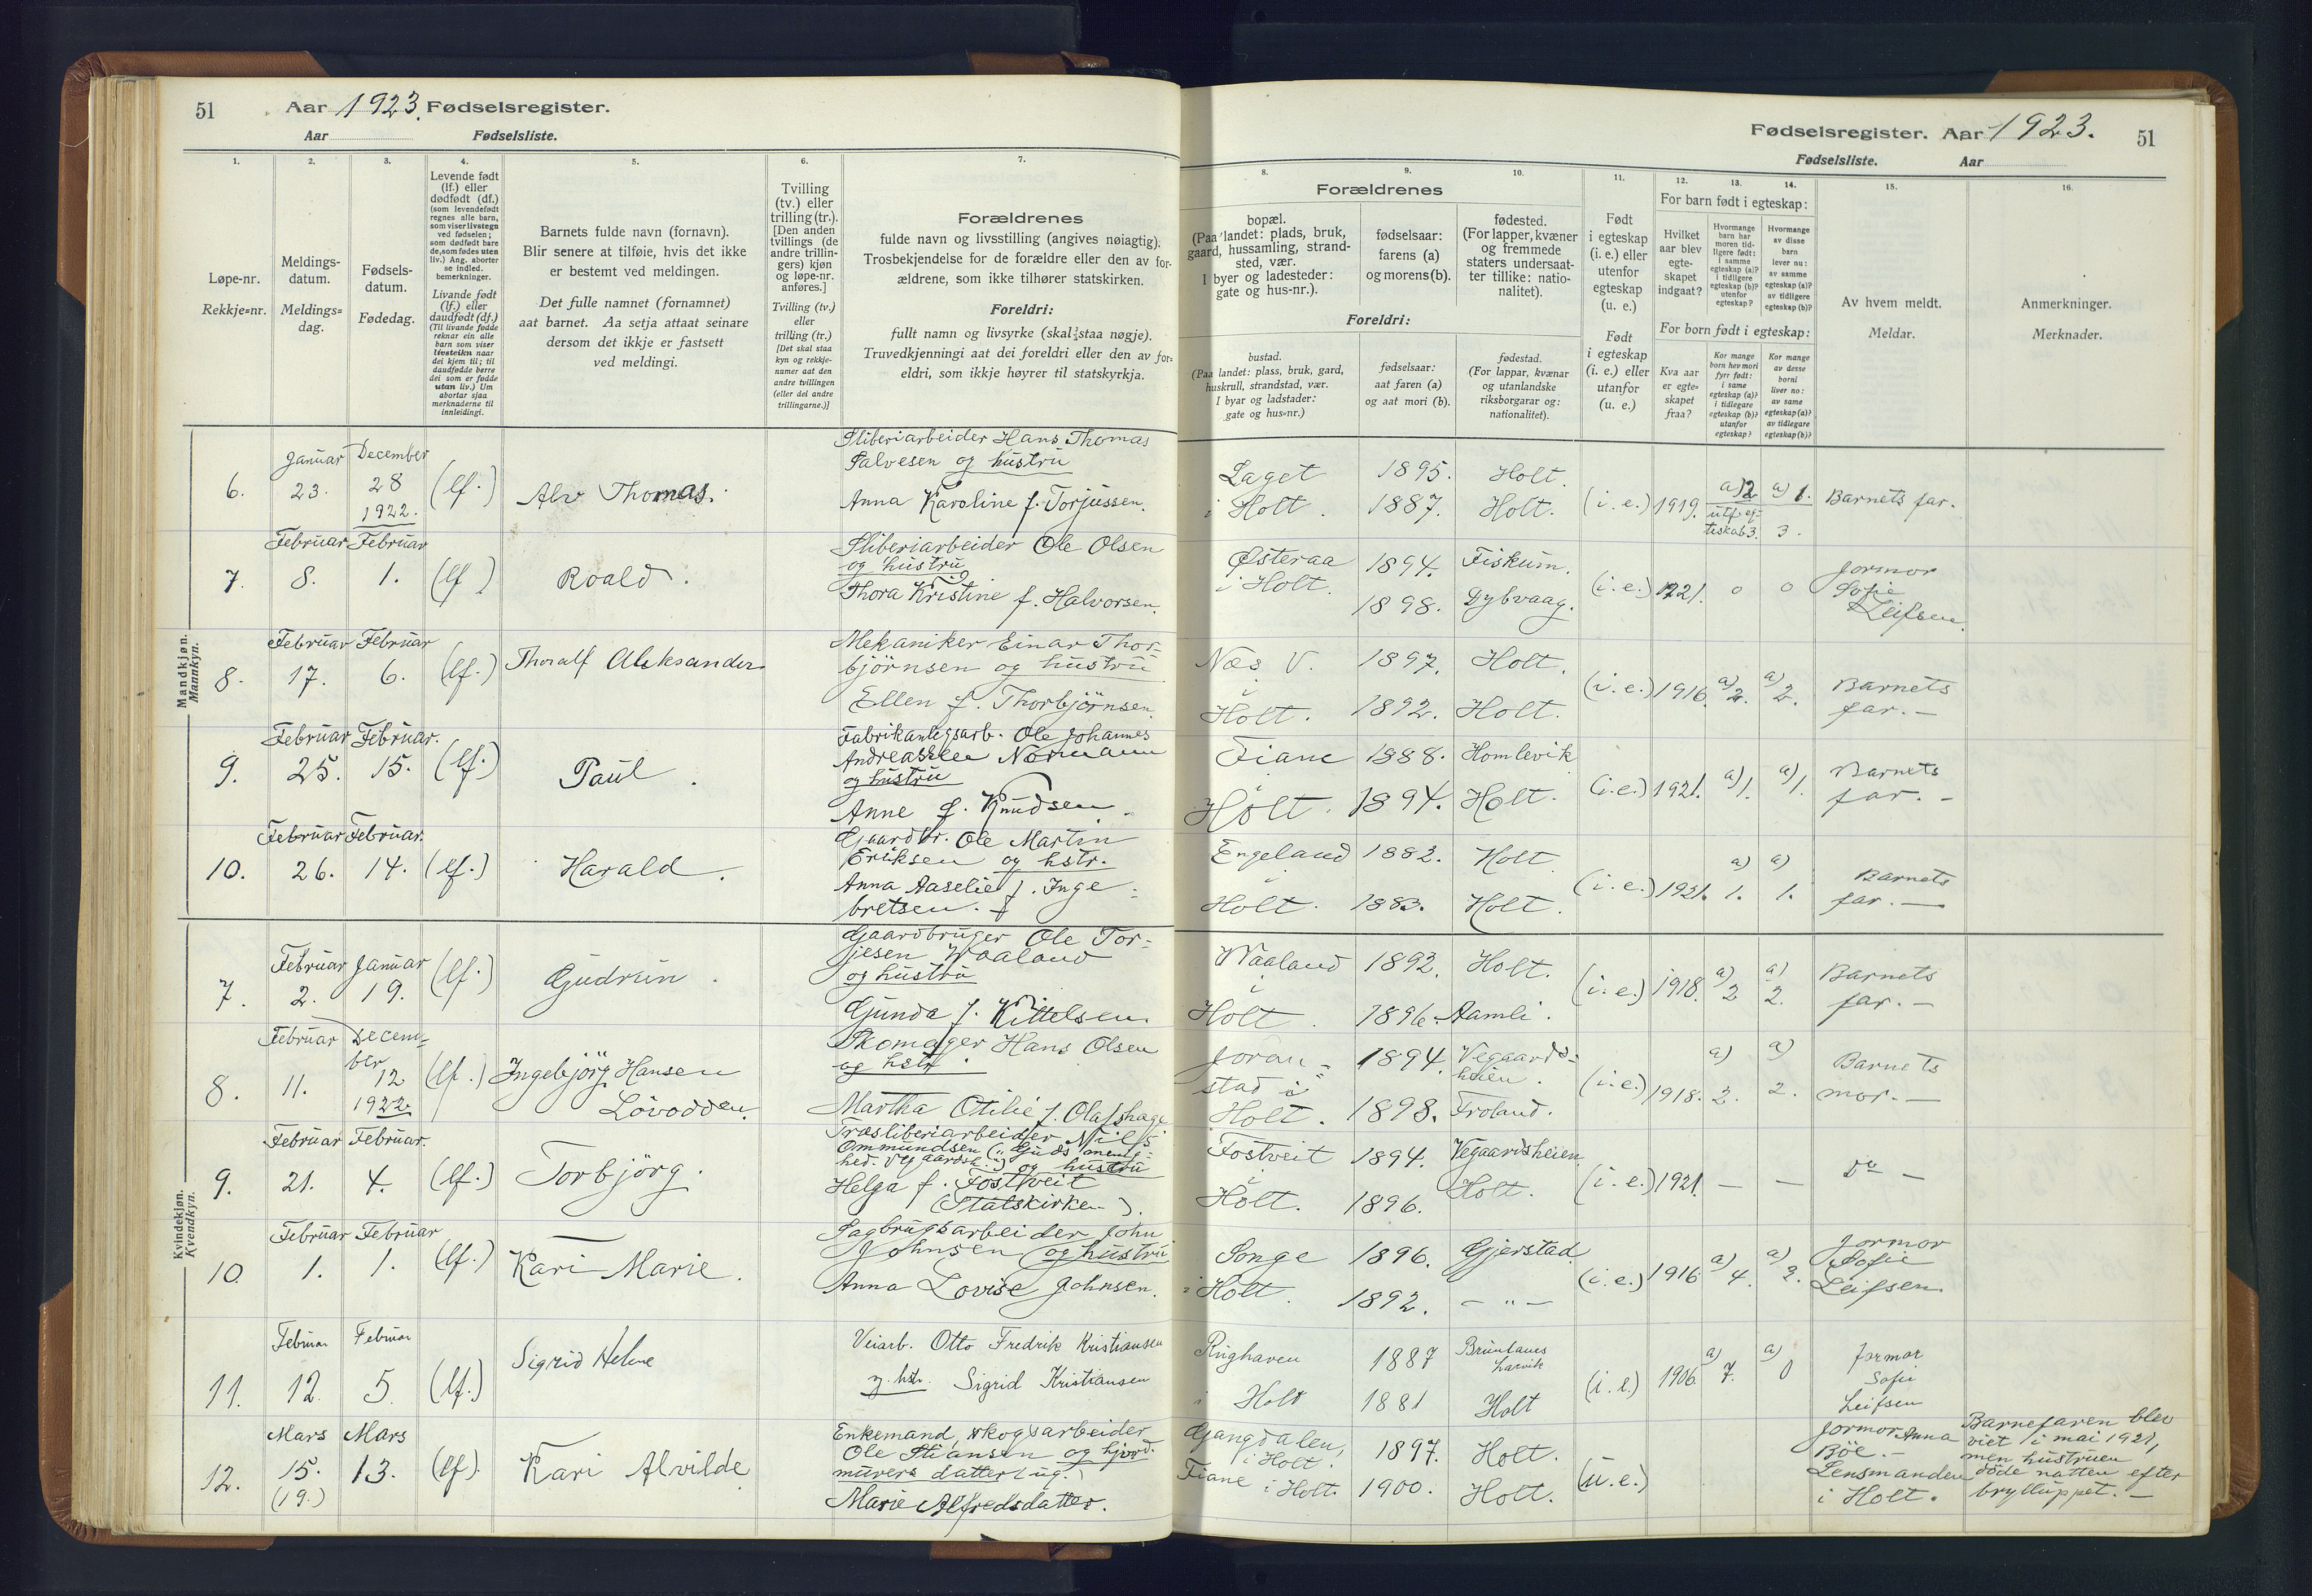 51 Aar 1923. Fødselsregister.
Aar Fødselsliste.
Fødselsregister. Aar 1923. 51
Fødselsliste. Aar
1.
Løpe-nr.
Rekkje=nr.
2.
Meldings-
datum.
Meldings=
dag.
3.
Fødsels-
datum.
Fødedag.
4.
Levende født
(lf.) eller
dødfødt (df.)
(som levendefødt
regnes alle barn,
som viser livstegn
ved fødselen;
som dødfødt bare
de, som fødes uten
liv.) Ang. aborter
se indled.
bemerkninger.
Livande født
(lf.) eller
daudfødt (df.)
(Til livande fødde
reknar ein alle
barn som viser
livsteikn naar
dei kjem til; til
daudfødde berre
dei som er fødde
utan liv.) Um
abortar sjaa
merknaderne til
innleidingi.
5.
Barnets fulde navn (fornavn).
Blir senere at tilføie, hvis det ikke
er bestemt ved meldingen.
Det fulle namnet (fornamnet)
aat barnet. Aa setja attaat seinare
dersom det ikkje er fastsett
ved meldingi.
6.
Tvilling
(tv.) eller
trilling (tr.).
[Den anden
tvillings (de
andre trillin-
gers) kjøn
og løpe-nr.
anføres.]
Tvilling (tv.)
eller
trilling (tr.)
[Det skal staa
kyn og rekkje-
numer aat den
andre tvillingen
(eller dei andre
trillingarne.)]
7.
Forældrenes
fulde navn og livsstilling (angives nøiagtig).
Trosbekjendelse for de forældre eller den av for-
ældrene, som ikke tilhører statskirken.
Foreldri:
fullt namn og livsyrke (skal staa nøgje).
Truvedkjenningi aat dei foreldri eller den av for=
eldri, som ikkje høyrer til statskyrkja.
8.
Forældrenes
bopæl.
(Paa landet: plads, bruk,
gaard, hussamling, strand-
sted, vær.
I byer og ladesteder:
gate og hus-nr.).
Foreldri:
bustad.
(Paa landet: plass, bruk, gard,
huskrull, strandstad, vær.
I byar og ladstader:
gate og hus=nr.)
9.
fødselsaar:
farens (a)
og morens (b).
fødselsaar:
aat faren (a)
og aat mori (b).
10.
fødested.
(For lapper, kvæner
og fremmede
staters undersaat-
ter tillike: natio-
nalitet).
fødestad.
(For lappar, kvænar
og utanlandske
riksborgarar og:
nationalitet).
11.
Født
i egteskap
(i. e.) eller
utenfor
egteskap
(u. e.)
Født
i egteskap
(i. e.) eller
utanfor
(u. e.)
For barn født i egteskap:
12.
Hvilket
aar blev
egte-
skapet
indgaat?
13.
Hvormange
barn har
moren tid-
ligere født:
i samme
egteskap (a)?
i tidligere
egteskap (b)?
utenfor
egteskap?
14.
Hvormange
av disse
barn
lever nu:
av samme
egteskap (a)?
av tidligere
egteskap (b)?
For born født i egteskap:
Kva aar
er egte-
skapet
fraa?
Kor mange
born hev mori
fyrr født:
i same
egteskap (a)?
i tidlegare
egteskap (b)?
utanfor
egteskap?
Kor mange
av desse
borni
liver no:
av same
egteskap (a)?
av tidlegare
egteskap (b)?
15.
Av hvem meldt.
Meldar.
16.
Anmerkninger.
Merknader.
Mandkjøn.
Mannkyn.
6. Januar 23. December 28 1922. (lf.) Alv Thomas.
Sliberiarbeider Hans Thomas
Salvesen og hustru
Anna Karoline f. Torjussen.
Laget 1895. Holt.
i Holt. 1887. Holt. (i.e.) 1919. a) 2 a) 1. Barnets far.
utf. eg-
teskab 3. 3.
7. Februar 8. Februar 1. (lf) Roald.
Sliberiarbeider Ole Olsen
og hustru
Thora Kristine f. Halvorsen.
Østeraa 1894. Fiskum.
i Holt. 1898. Dybvaag. (i.e.) 1921. o o Jormor
Sofie
Leifsen.
8. Februar 17. Februar 6. (lf.) Thoralf Aleksander
Mekaniker Einar Thor-
björnsen og hustru
Ellen f. Thorbjörnsen.
Næs V. 1897. Holt.
i
Holt. 1892. Holt. (i.e.) 1916. a) 2. a) 2. Barnets
far. —
9. Februar 25. Februar. 15. (lf.) Paul.
Fabrikanlegsarb. Ole Johannes
Andreassen Normann
og hustru
Anne f. Knudsen.
Fiane 1888. Homlevik
i
Holt. 1894. Holt. (i.e.) 1921. a) 1. a) 1. Barnets
far. -
10. Februar 26. Februar. 14. (lf.) Harald.
Gaardbr. Ole Martin
Eriksen og hstr.
Anna Aaselie f. Inge-
bretsen.
Engeland 1882. Holt
i
Holt. 1883. Holt. (i.e.) 1921. a) 1. a) 1. Barnets
far. —
Kvindekjøn.
Kvendkyn.
7. Februar 2. Januar 19. (lf.) Gudrun.
Gaardbruger Ole Tor-
jesen Waaland
og hustru
Gunda f. Kittelsen
Waaland 1892. Holt.
i
Holt. 1896. Aamli. (i.e.) 1918. a) 2 a) 2. Barnets
far. —
8. Februar 11. Decem=
ber 12 1922. (lf.) Ingebjörg Hansen
Lövodden.
Skomager Hans Olsen
og hstr.
Martha Otilie f. Olafshage
Joran=
stad i 1894. Vegaards-
heien.
Holt. 1898. Froland. (i.e.) 1918. a) 2. a) 2. Barnets
mor. —
9. Februar 21. Februar. 4. (lf.) Torbjörg.
Træsliberiarbeider Nils
Ommundsen („Guds menig-
hed. Vegaardsh.“) og hustru
Helga f. Fostveit
(Statskirken).
Fostveit 1894. Vegaardsheien.
i
Holt. 1896. Holt. (i.e.) 1921. — — Do —
10. Februar 1. Februar 1. (lf.) Kari Marie.
Sagbrugsarbeider John
Johnsen og hustru
Anna Lovise Johnsen.
Songe 1896. Gjerstad.
i Holt. 1892. — „ — (i.e.) 1916. a) 4. a) 2. Jormor
Sofie
Leifsen.
11. Februar 12. Februar 5. (lf.) Sigrid Helene
Veiarb. Otto Fredrik Kristiansen
og hstr. Sigrid Kristiansen
Rughaven 1887 Brunlanes
Larvik
i Holt 1881 Holt (i.e.) 1906. a) 7. a) 0 Jormor
Sofie
Leifsen
12. Mars 15. (19.) Mars 13. (lf). Kari Alvilde
Enkemand, skogsarbeider
Ole Stiansen og hjord.
murers datter (ug.)
Marie Alfredsdatter.
Gangdalen,
i Holt. 1897. Holt.
Fiane i Holt. 1900. Holt. (u.e.)
Jormor Anna
Böe. —
Lensmanden
i Holt.
Barnefaren blev
viet i mai 1921,
men hustruen
döde natten efter
brylluppet. —